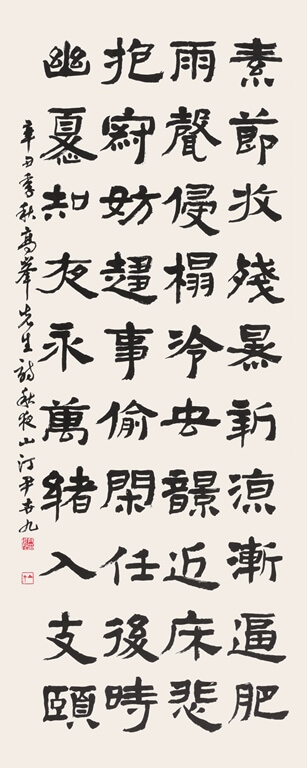 素節收殘暑新涼漸逼肥
雨聲侵榻冷虫韻近床悲
抱窮妨趨事偷閑任後時
幽憂知夜永萬緒入支頤
辛丑季秋高峯先生詩秋夜山汀尹